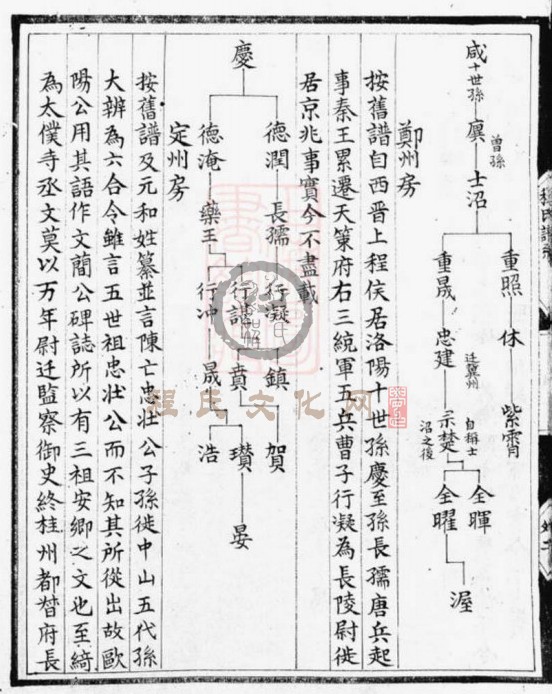 咸十世孫 廙 曾孫 士沼
重照 休 紫霄
重晟 忠建 遷冀州 示楚 自稱士沼之後
仝暉 渥
仝曜
鄭州房
按舊譜自西晋上程侯居洛陽十世孫慶至孫長孺唐兵起
事秦王累遷天策府右三統軍五兵曹子行凝為長陵尉徙
居京兆事實今不盡載
慶
德潤 長孺 行凝 鎮 賀
德淹 藥王 行諶 賁 瓚 晏
行冲 晟 浩
定州房
按舊譜及元和姓纂並言陳亡忠壯公子孫徙中山五代孫
大辨為六合令雖言五世祖忠壯公而不知其所從出故歐
陽公用其語作文簡公碑誌所以有三祖安鄉之文也至綺
為太僕寺丞文莫以万年尉迁監察御史終桂州都督府長
程氏文化网